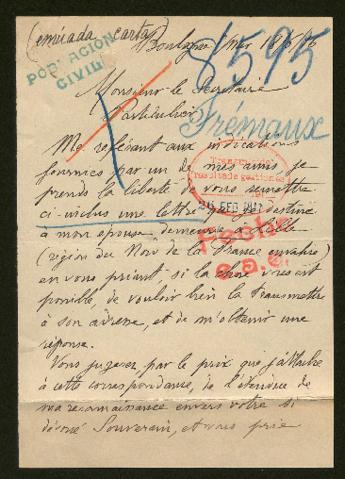 (enviada carta)
Boulogne s/Mer
8595
POBLACION
CIVIL
Monsieur le Secrétaire
Particulier
Frémaux
Me référant aux indications
fournies par un de mes amis je
prends la liberté de vous remettre
ci-inclus une lettre que je destine
à mon épouse demeurant à Lille
(région du Nord de la France envahie)
en vous priant si la chose vous est
possible, de vouloir bien la transmettre
à son adresse, et de m'obtenir une
réponse.
Vous jugerez par le prix que j'attache
à cette correspondance, de l'étendue de
ma reconnaissance envers votre si
dévoué Souverain, et vous prie